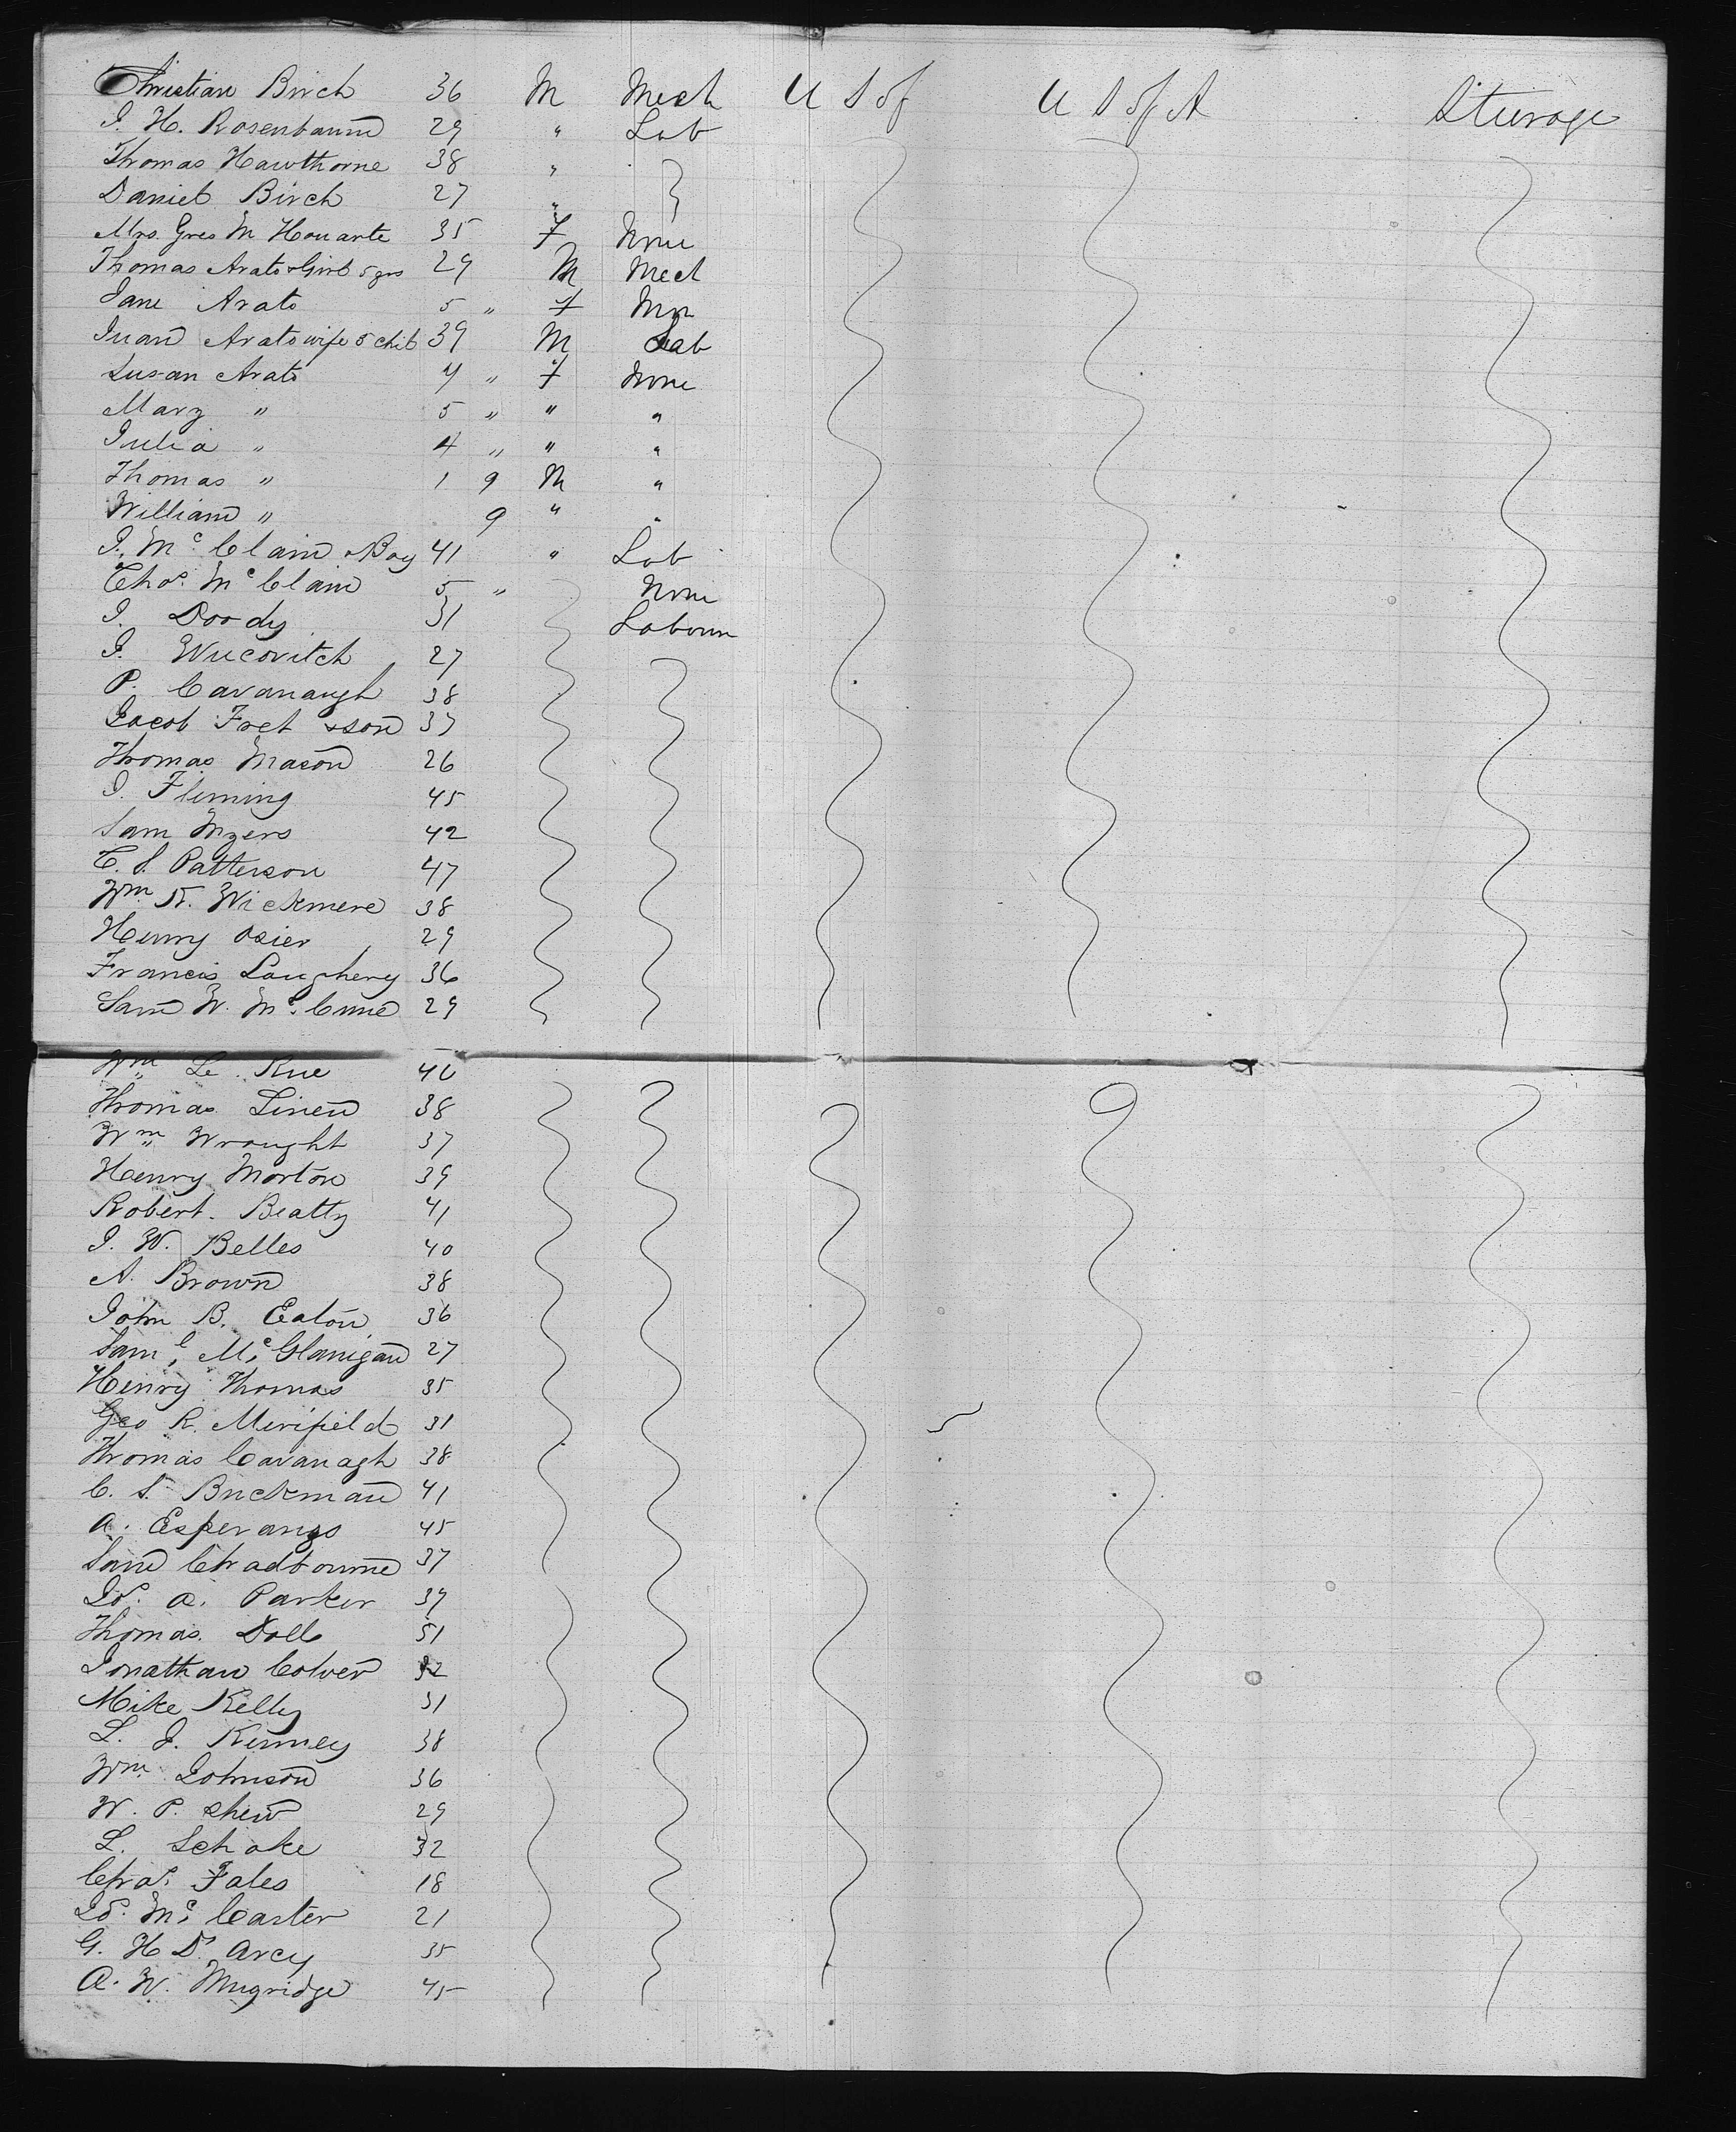 Christian Birch 36 M Mech U S of U S of A Steerage
J. H. Rosenbaum 29 " Lab
Thomas Hawthorne 38 "
Daniel Birch 27 "
Mrs. Gres M Houarte 35 F None
Thomas Arato & Girl 5 yrs 29 M Mech
Jane Arato 5 " F Non
Juan Arato wife 5 chil 39 M Lab
Susan Arato 7 " F None
Mary " 5 " " "
Julia " 4 " " "
Thomas " 1 9 M "
William " 9 " "
J. Mc Clain & Boy 41 " Lab
Thos. Mc Clain 5 " None
J. Doody 31 Laborer
J. Wucovitch 27
P. Cavanaugh 38
Jacob Fret & son 37
Thomas Mason 26
J. Fleming 45
Sam Myers 42
C. S. Patterson 47
Wm. K. Wickmere 38
Henry Osier 29
Francis Laughery 36
Sam W. Mc. Cune 29
Wm Le Rue 40
Thomas Linen 38
Wm Wrought 37
Henry Morton 39
Robert. Beatty 41
J. W. Belles 40
A. Brown 38
John B. Eaton 36
Saml. Mc. Glanigan 27
Henry Thomas 35
Geo R. Merifield 31
Thomas Cavanagh 38
C. S. Buckman 41
A. Esperanzo 45
Sam Chadbourne 37
Jos. A. Parker 39
Thomas. Doll 51
Jonathan Colver 32
Mike Kelly 31
L. J. Kinney 38
Wm. Johnson 36
W. P. Shew 29
L. Schoke 32
Chas. Fales 18
Jos. Mc. Carter 21
G. H D' Arcy 35
A. W. Mugridge 45